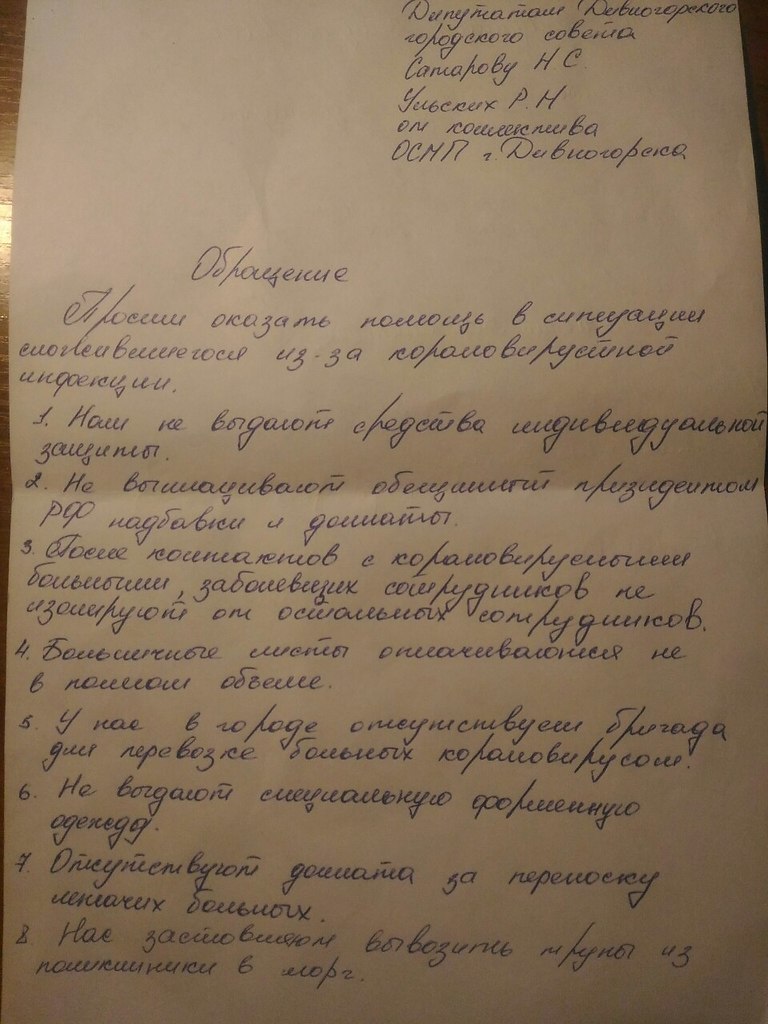 Депутатам Дивногорского
городского совета
Сатарову Н С.
Ульских Р. Н
от коллектива
ОСМП г. Дивногорска
Обращение
Просим оказать помощь в ситуации
сложившегося из-за короновирустной
инфекции.
1. Нам не выдают средства индивидуальной
защиты.
2. Не выплачивают обещанный президентом
РФ надбавки и доплаты.
3. После контактов с короновирусными
больными, заболевших сотрудников не
изолируют от остальных сотрудников.
4. Больничные листы оплачиваются не
в полном объеме.
5. У нас в городе отсутствует бригада
для перевозке больных короновирусом.
6. Не выдают специальную форменную
одежду.
7. Отсутствуют доплата за переноску
лежачих больных.
8. Нас заставляют вывозить трупы из
поликлиники в морг.